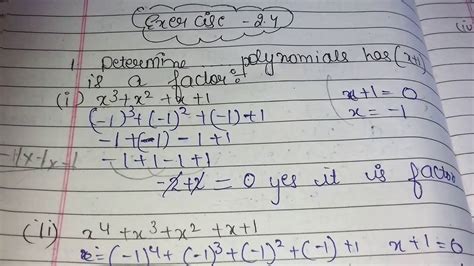 Exercise - 2.4
1 Determine polynomials has (x+1)
is a factor:
(i) x³+x²+x+1
x+1 = 0
(-1)³+(-1)²+(-1)+1
x = -1
-1+(-1)-1+1
-1+1-1+1
-2+2 = 0 yes it is factor
(ii) x⁴+x³+x²+x+1
= (-1)⁴+(-1)³+(-1)²+(-1)+1 x+1=0